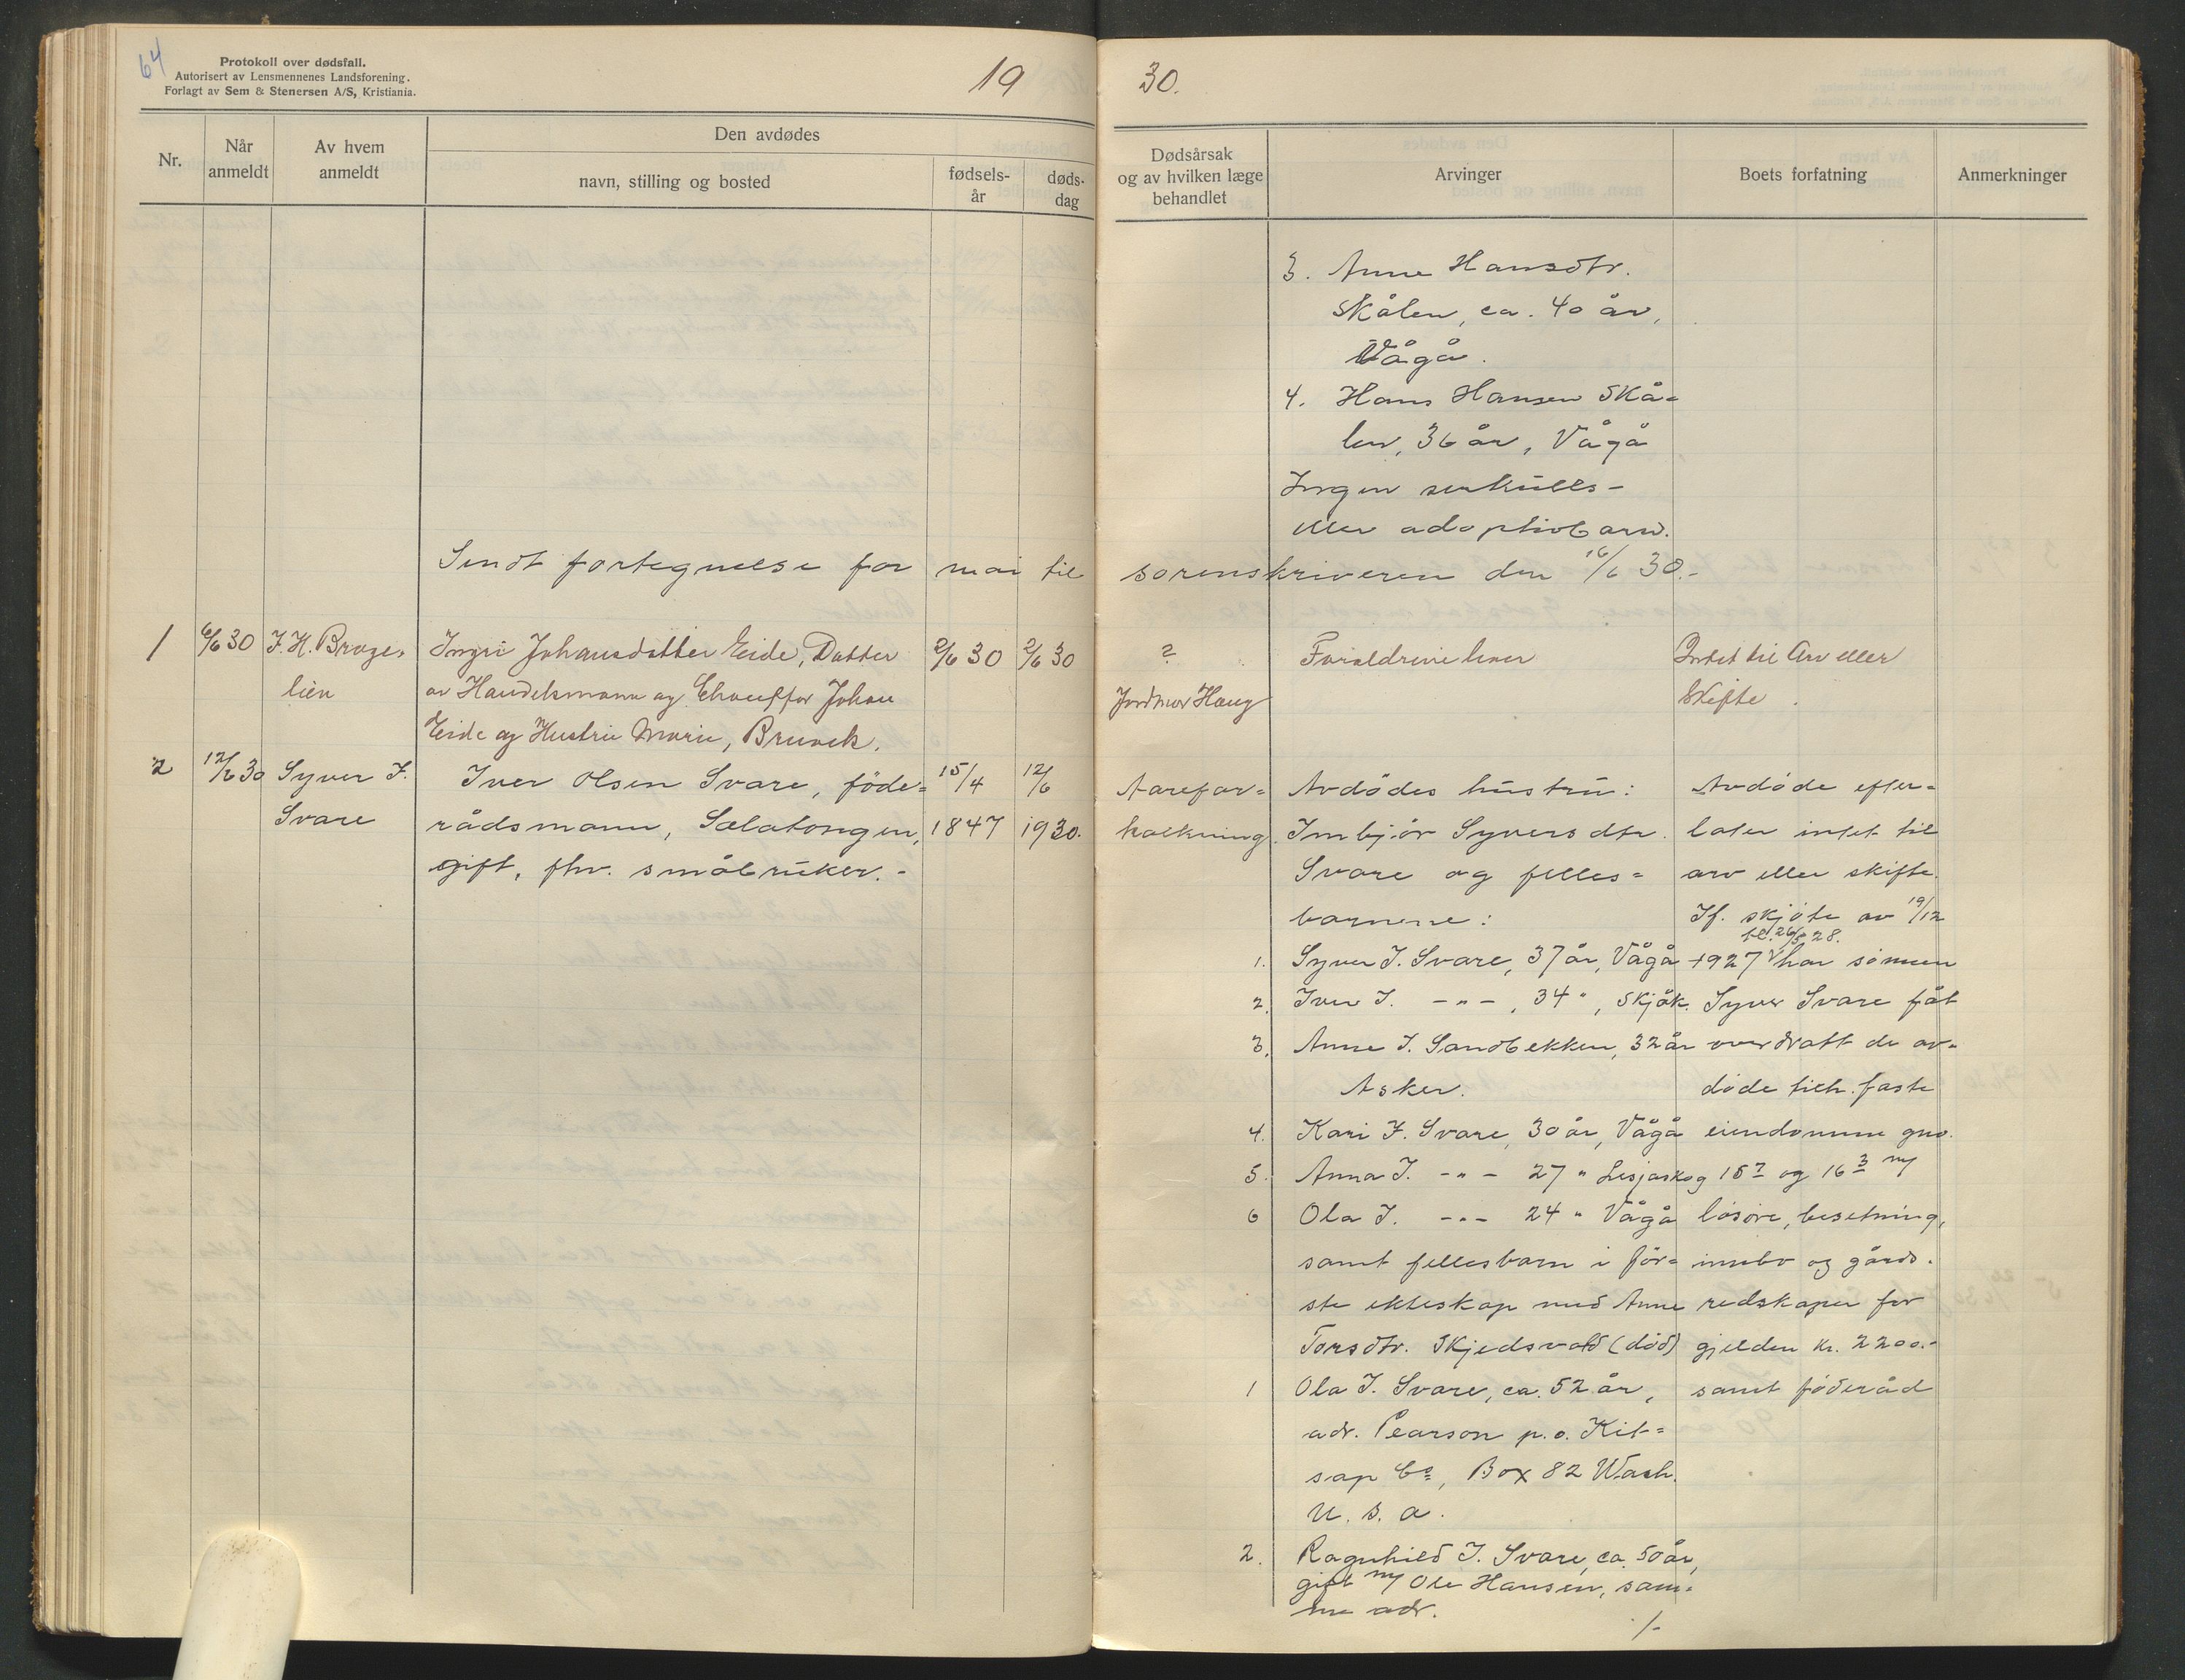 64
Protokoll over dødsfall.
Autorisert av Lensmennenes Landsforening.
Forlagt av Sem & Stenersen A/S, Kristiania.
19 30.
Nr.
Når anmeldt
Av hvem anmeldt
Den avdødes
navn, stilling og bosted
fødsels-år
døds-dag
Dødsårsak og av hvilken læge behandlet
Arvinger
Boets forfatning
Anmerkninger
3. Anne Hansdtr.
Skålen, ca. 40 år,
Vågå.
4. Hans Hansen Skå-
len, 36 år, Vågå
Ingen serkulls-
eller adoptivbarn.
Sendt fortegnelse for mai til sorenskriveren den 16/6 30.-
1 6/6 30 J. H. Bruge-
lien
Ingri Johansdatter Eide, Datter
av Handelsmann og Chauffør Johan
Eide og Hustru Marie, Bruvek.
2/6 30 2/6 30
?
Jordmor Haug
Foreldrene lever
Intet til Arv eller
Skifte.
2 12/6 30 Syver I.
Svare
Iver Olsen Svare, föde-
rådsmann, Sælatongen,
gift, fhv. småbruker.-
15/4
1847
12/6
1930.
Aarefor-
kalkning.
Avdödes hustru:
Imbjör Syversdtr.
Svare og felles-
barnene:
1. Syver I. Svare, 37 år, Vågå
2. Iver I. -"- , 34 " , Skjåk.
3. Anne I. Sandbekken, 32 år
Asker.
4. Kari I. Svare, 30 år, Vågå
5. Anna I. -"- 27 " Lesjaskog
6 Ola I. -"- 24 " Vågå
samt fellesbarn i för-
ste ekteskap med Anne
Torsdtr. Skjedsvold (död)
1 Ola I. Svare, ca. 52 år,
adr. Pearson p.o. Kit-
sap Co, Box 82 Wash.
U. S. A.
2. Ragnhild I. Svare, ca. 50 år,
gift m/ Ole Hansen, sam-
me adr.
/-
Avdöde efter-
later intet til
arv eller skifte.
Jf. skjöte av 19/12
tl. 26/5 28.
1927 har sönnen
Syver Svare fåt
overdratt de av-
döde tilh. faste
eiendomme gno.
15 7 og 16 3 m/
lösöre, besetning,
innbo og gårds-
redskaper for
gjelden kr. 2200.-
samt föderåd